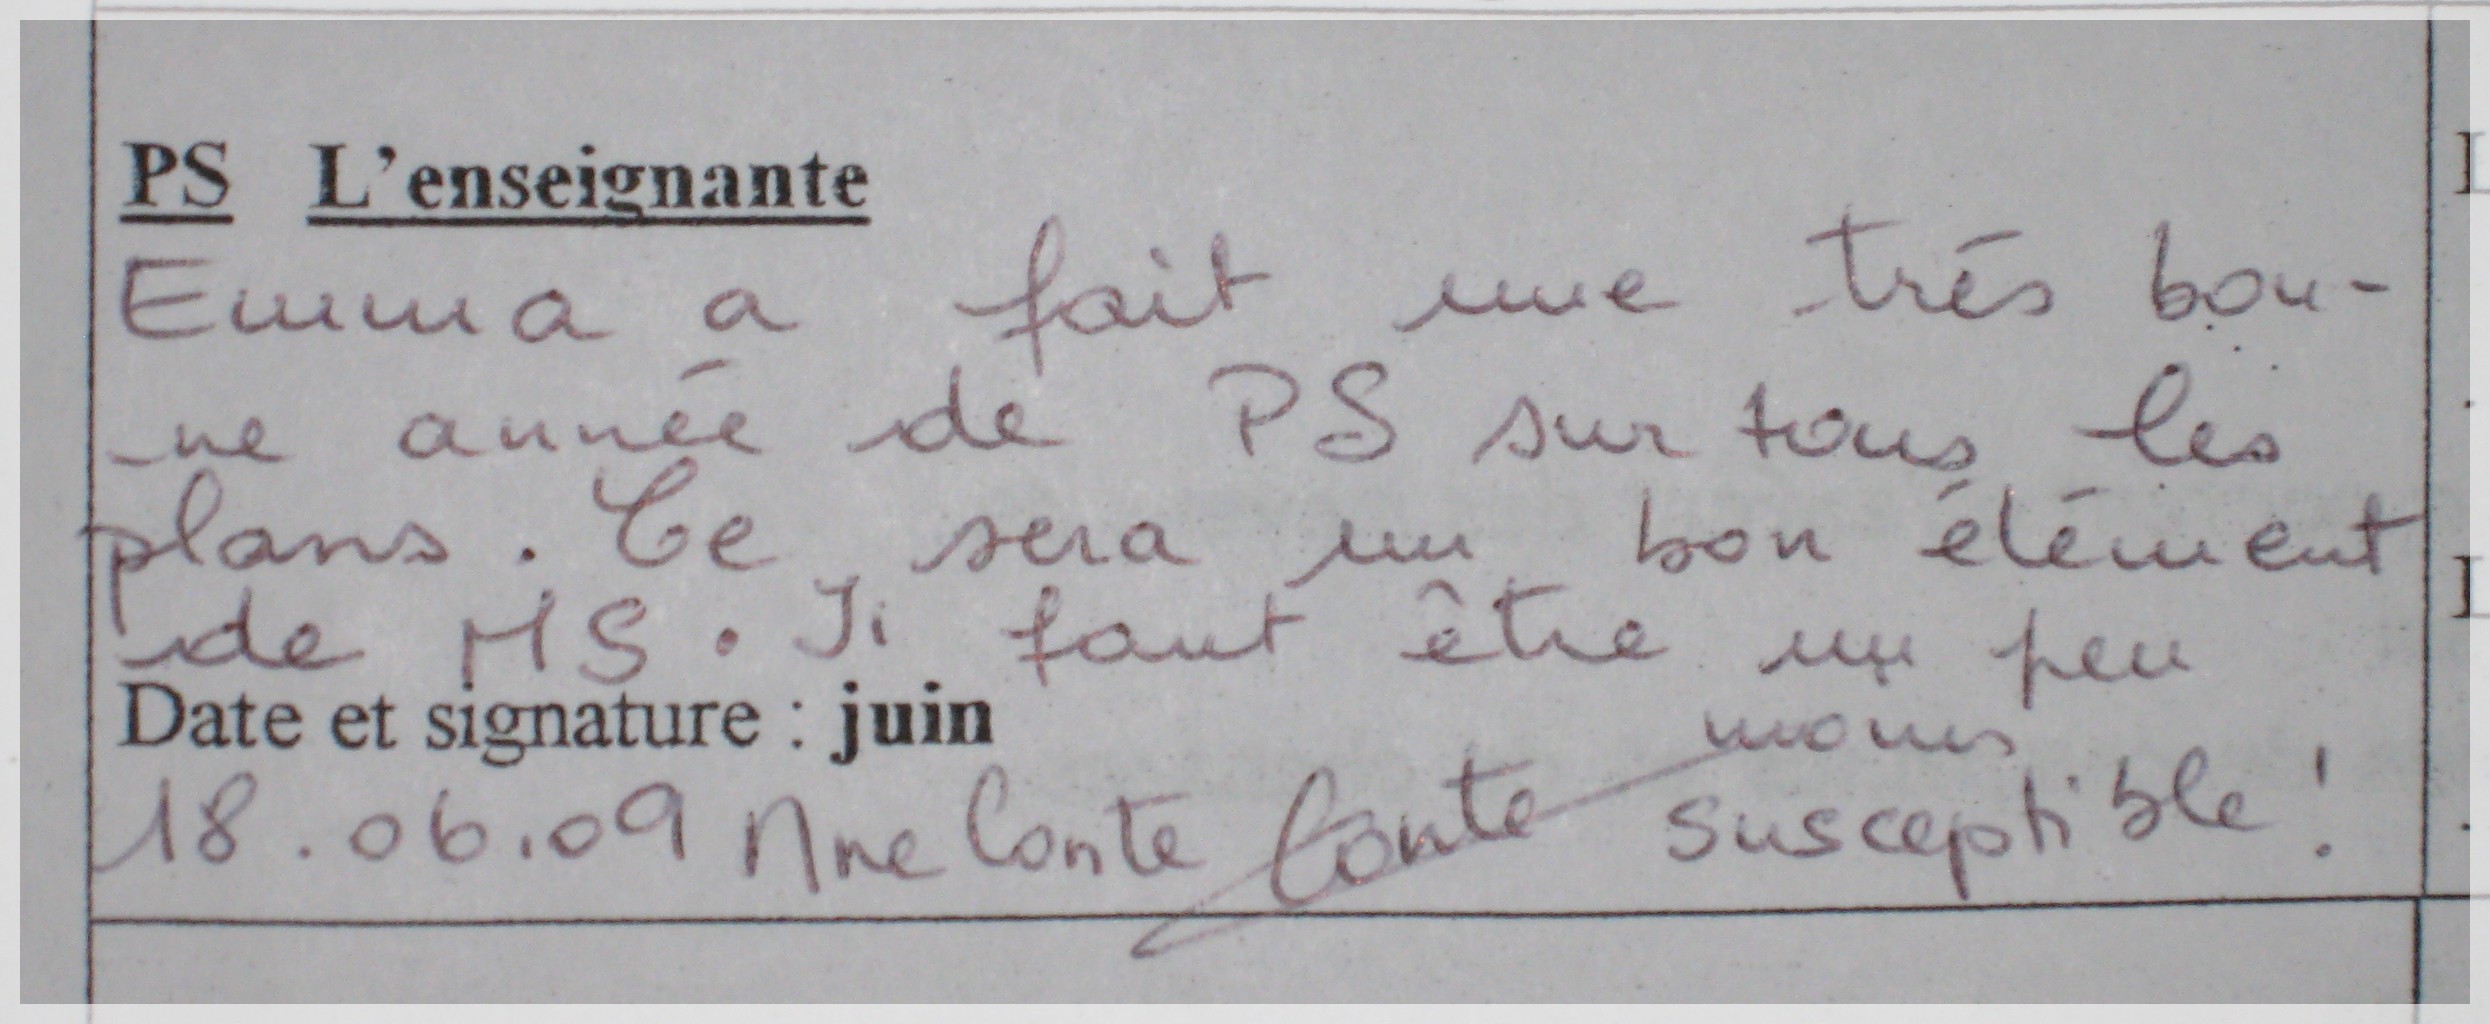 PS L'enseignante
Emma a fait une très bon-
ne année de PS sur tous les
plans. Ce sera un bon élément
de MS. Il faut être un peu
Date et signature : juin
moins
18.06.09 Anne Conte Conte susceptible !